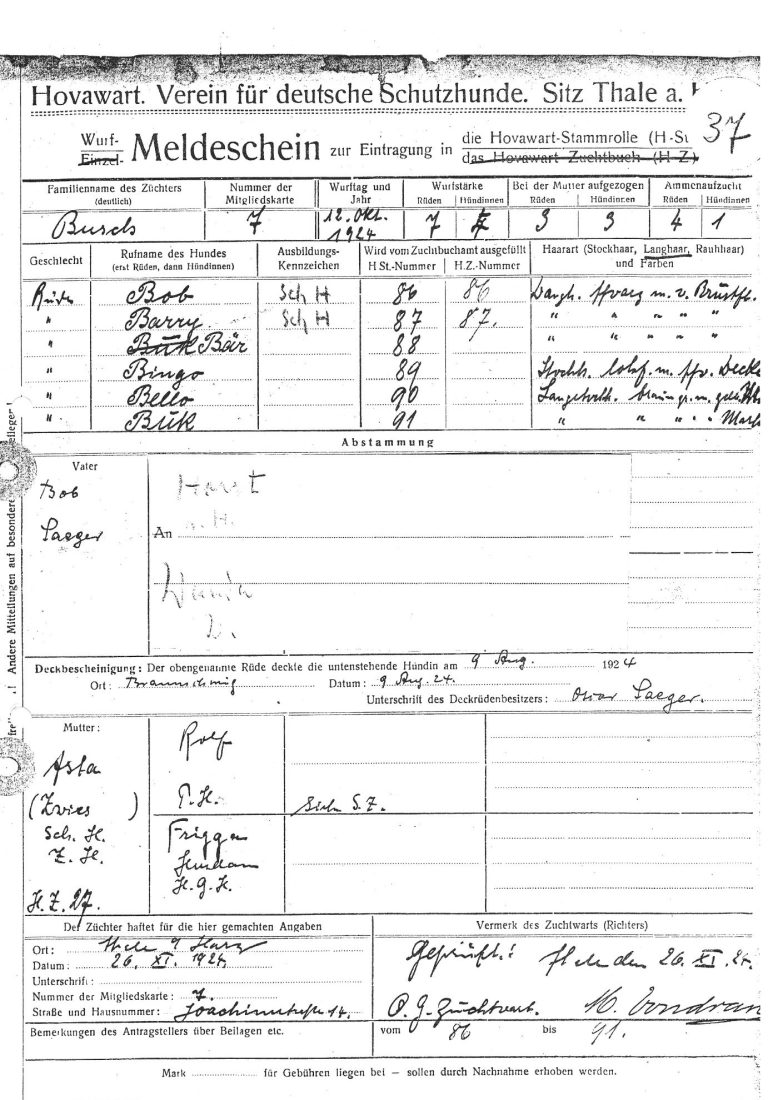 Hovawart. Verein für deutsche Schutzhunde. Sitz Thale a.
37
Wurf-
Einzel- Meldeschein zur Eintragung in die Hovawart-Stammrolle (H-St
das Hovawart Zuchtbuch (H Z)
Familienname des Züchters (deutlich) Nummer der Mitgliedskarte Wurftag und Jahr Wurfstärke Rüden Hündinnen Bei der Mutter aufgezogen Rüden Hündinnen Ammenaufzucht Rüden Hündinnen
Busch 7 12. Okt. 1924 7 3 3 4 1
Geschlecht Rufname des Hundes (erst Rüden, dann Hündinnen) Ausbildungs-Kennzeichen Wird vom Zuchtbuchamt ausgefüllt H St.-Nummer H.Z.-Nummer Haarart (Stockhaar, Langhaar, Rauhhaar) und Farben
Rüde Bob Sch H 86 86 Langh. schwarz m. v. Brustfl.
" Barry Sch H 87 87. " " " " "
" Bär 88 " " " " "
" Bingo 89 Stockh. m. Decke
" Bello 90
" Buk 91 " " " "
Abstammung
Vater
Bob
Saeger
Horst
An
Deckbescheinigung: Der obengenannte Rüde deckte die untenstehende Hündin am 9 Aug. 1924
Ort: Braunschweig Datum: 9 Aug. 24.
Unterschrift des Deckrüdenbesitzers: Oscar Saeger.
Mutter:
Asta
Sch. H.
Z. H.
H. Z. 27.
Rolf
T. H.
Frigga
H. G. H.
Sieh S. Z.
Der Züchter haftet für die hier gemachten Angaben
Ort: Thale Harz
Datum: 26. XI. 1924.
Unterschrift:
Nummer der Mitgliedskarte: 7.
Straße und Hausnummer: Joachimstraße 14.
Bemerkungen des Antragstellers über Beilagen etc.
Vermerk des Zuchtwarts (Richters)
Geprüft! Thale den 26. XI. 24.
Zuchtwart. M. Vondran
vom 86 bis 91.
Mark für Gebühren liegen bei – sollen durch Nachnahme erhoben werden.
! Andere Mitteilungen auf besondere